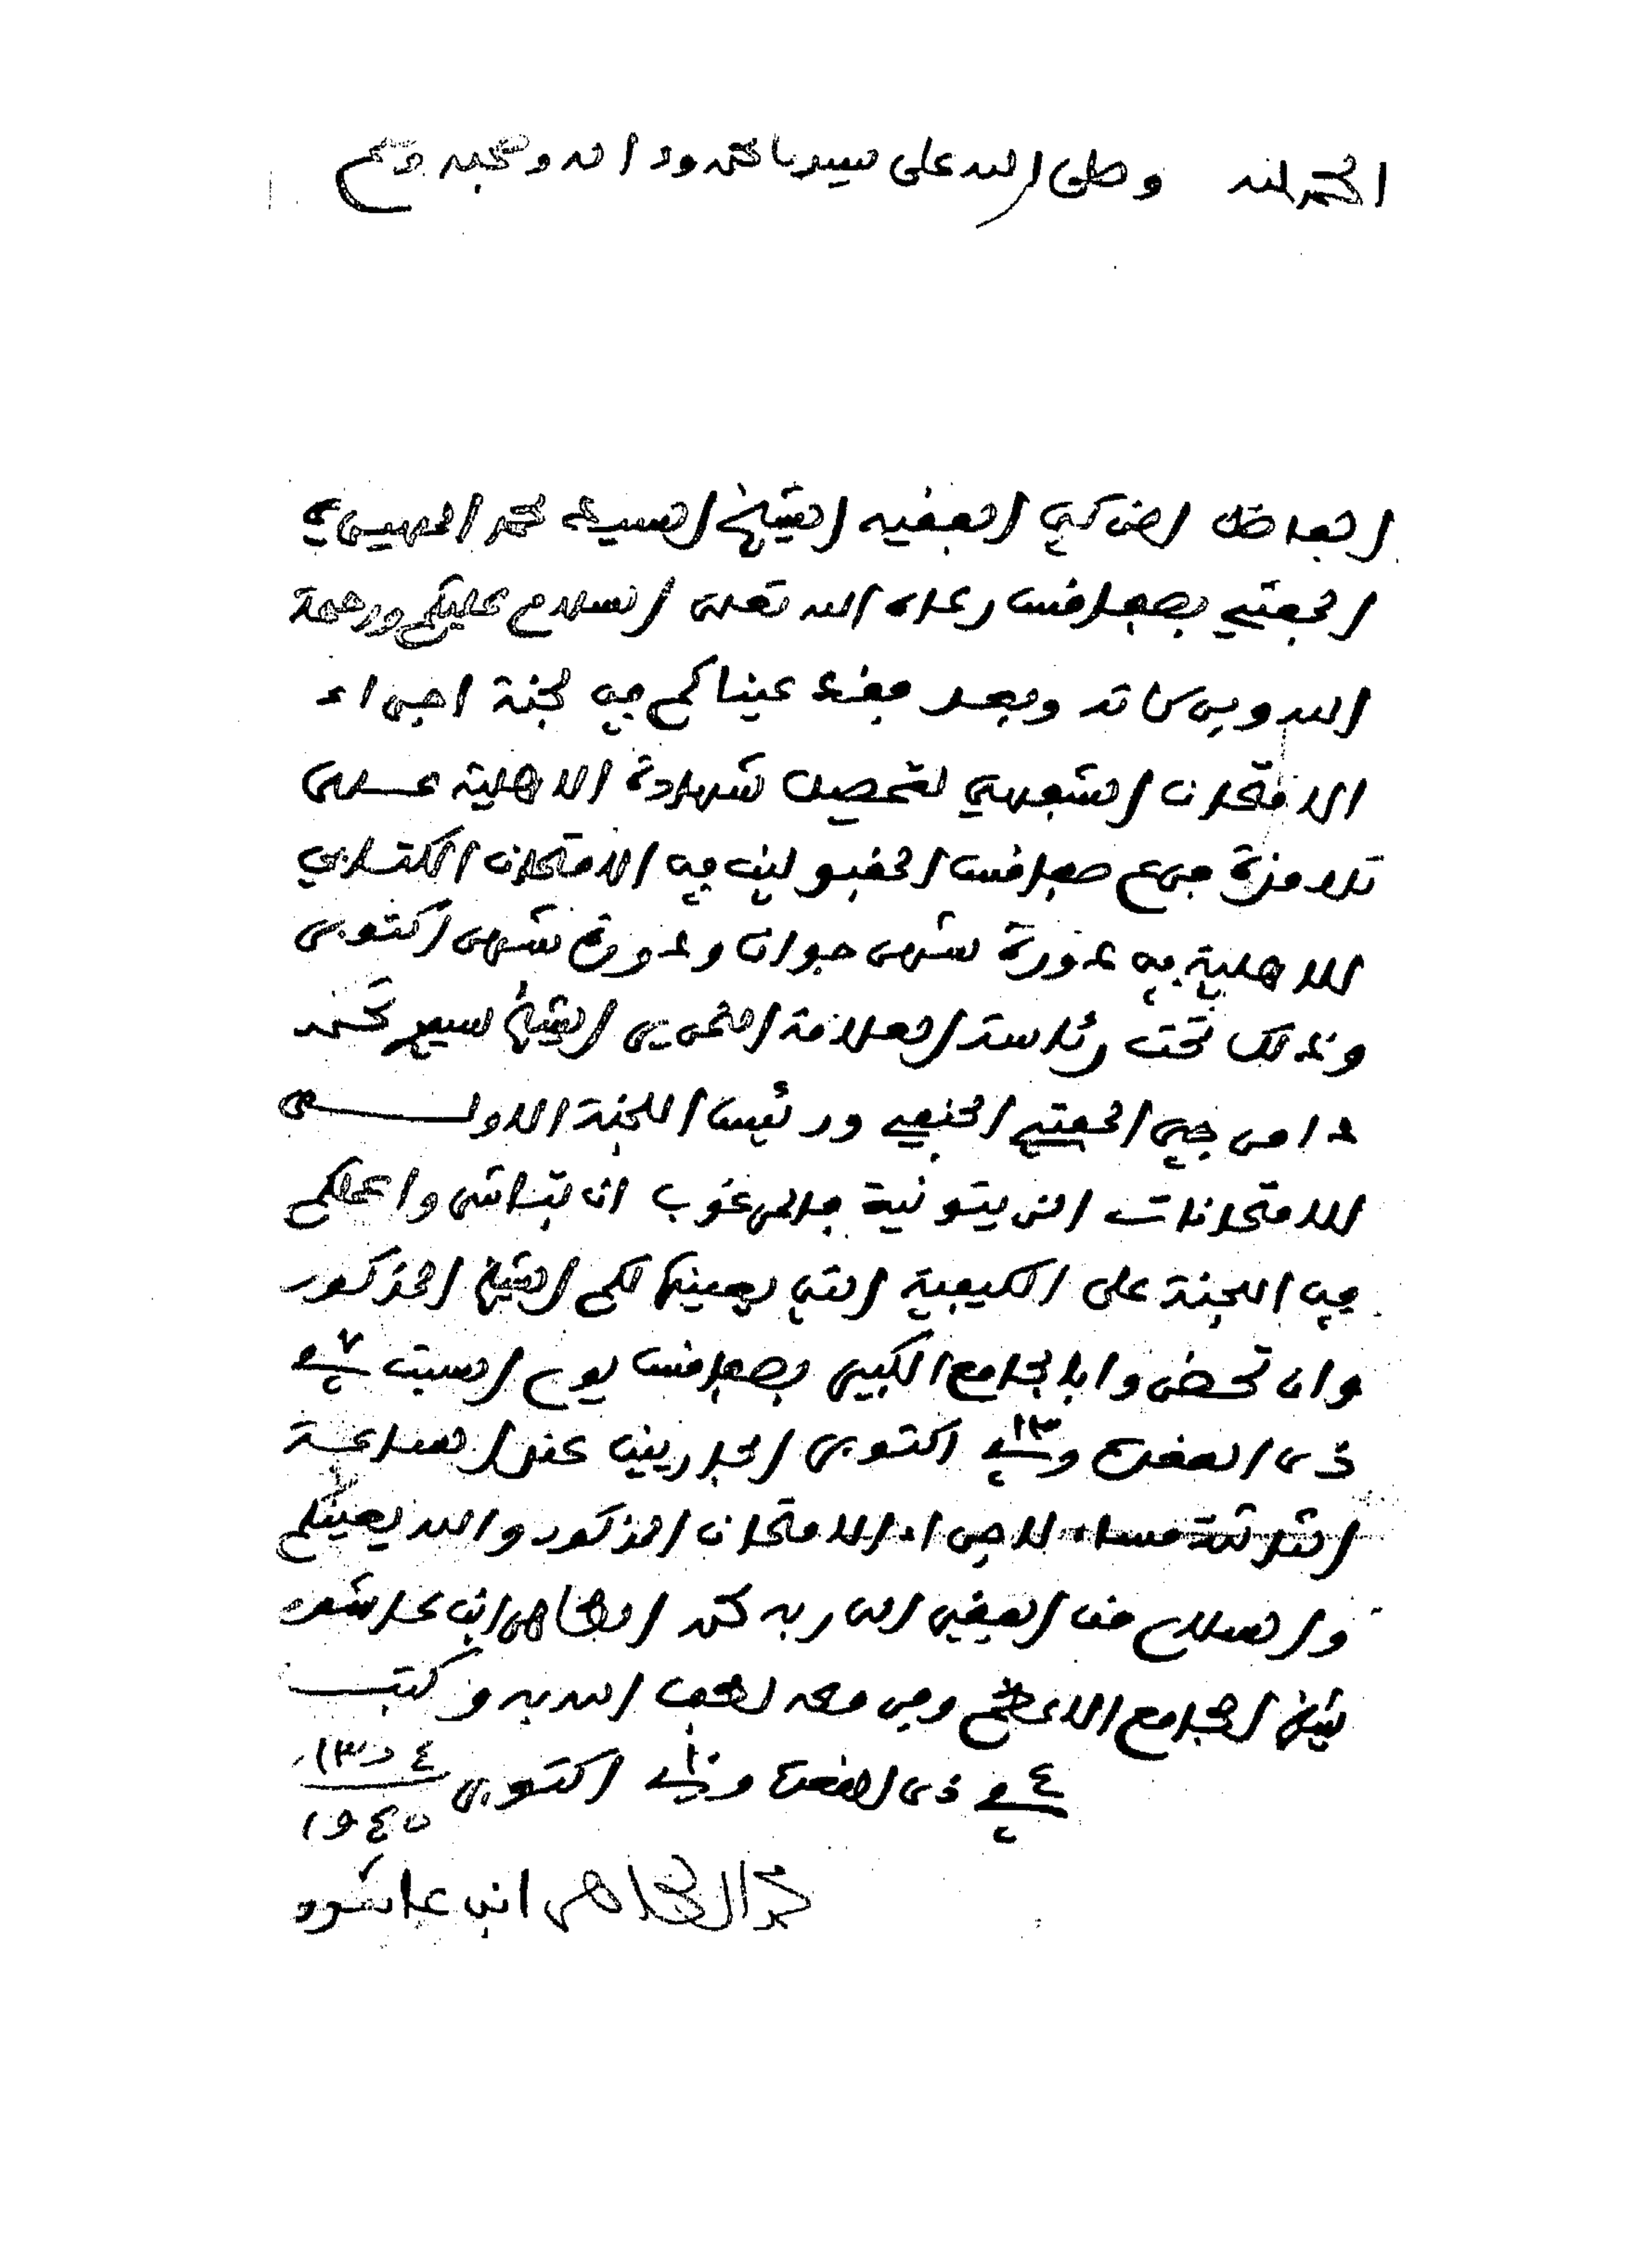 الحمد لله وصلى الله على سيدنا محمد وءاله وصحبه وسلم
الفاضل الزكي الفقيه الشيخ السيد محمد المهيري
المفتي بصفاقس رعاه الله تعلى السلام عليكم ورحمة
الله وبركاته وبعد فقد عيناكم في لجنة اجراء
الامتحان الشفهي لتحصيل شهادة الاهلية على
تلامذة فرع صفاقس المقبولين في الامتحان الكتابي
للاهلية في دورة شهر جوان ودورة شهر اكتوبر
وذلك تحت رئاسة العلامة النحرير الشيخ سيدي محمد
دامرجي المفتي الحنفي ورئيس اللجنة الاولى
للامتحانات الزيتونية فالمرغوب ان تباشروا عملكم
في اللجنة على الكيفية التي يعينها لكم الشيخ المذكور
وان تحضروا بالجامع الكبير بصفاقس يوم السبت في ٧
ذي القعدة وفي ١٣ اكتوبر الجاريين عند الساعة
الثالثة مساء لاجراء الامتحان المذكور والله يعينكم
والسلام من الفقير الى ربه محمد الطاهر ابن عاشور
شيخ الجامع الاعظم وفروعه لطف الله به وكتب
في ٤ ذي القعدة وفي ١٠ اكتوبر ١٣٦٤ ١٩٤٥
محمد الطاهر ابن عاشور